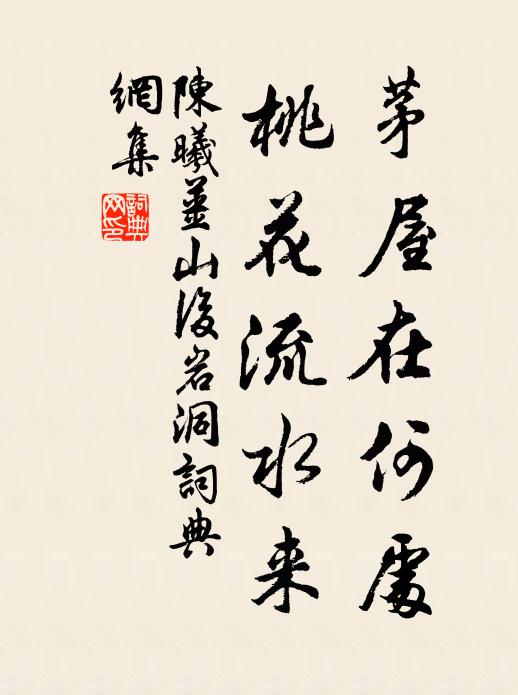 茅屋在何處
桃花流水来
陳曦薑山後岩洞詞典
網集
詞典
网印